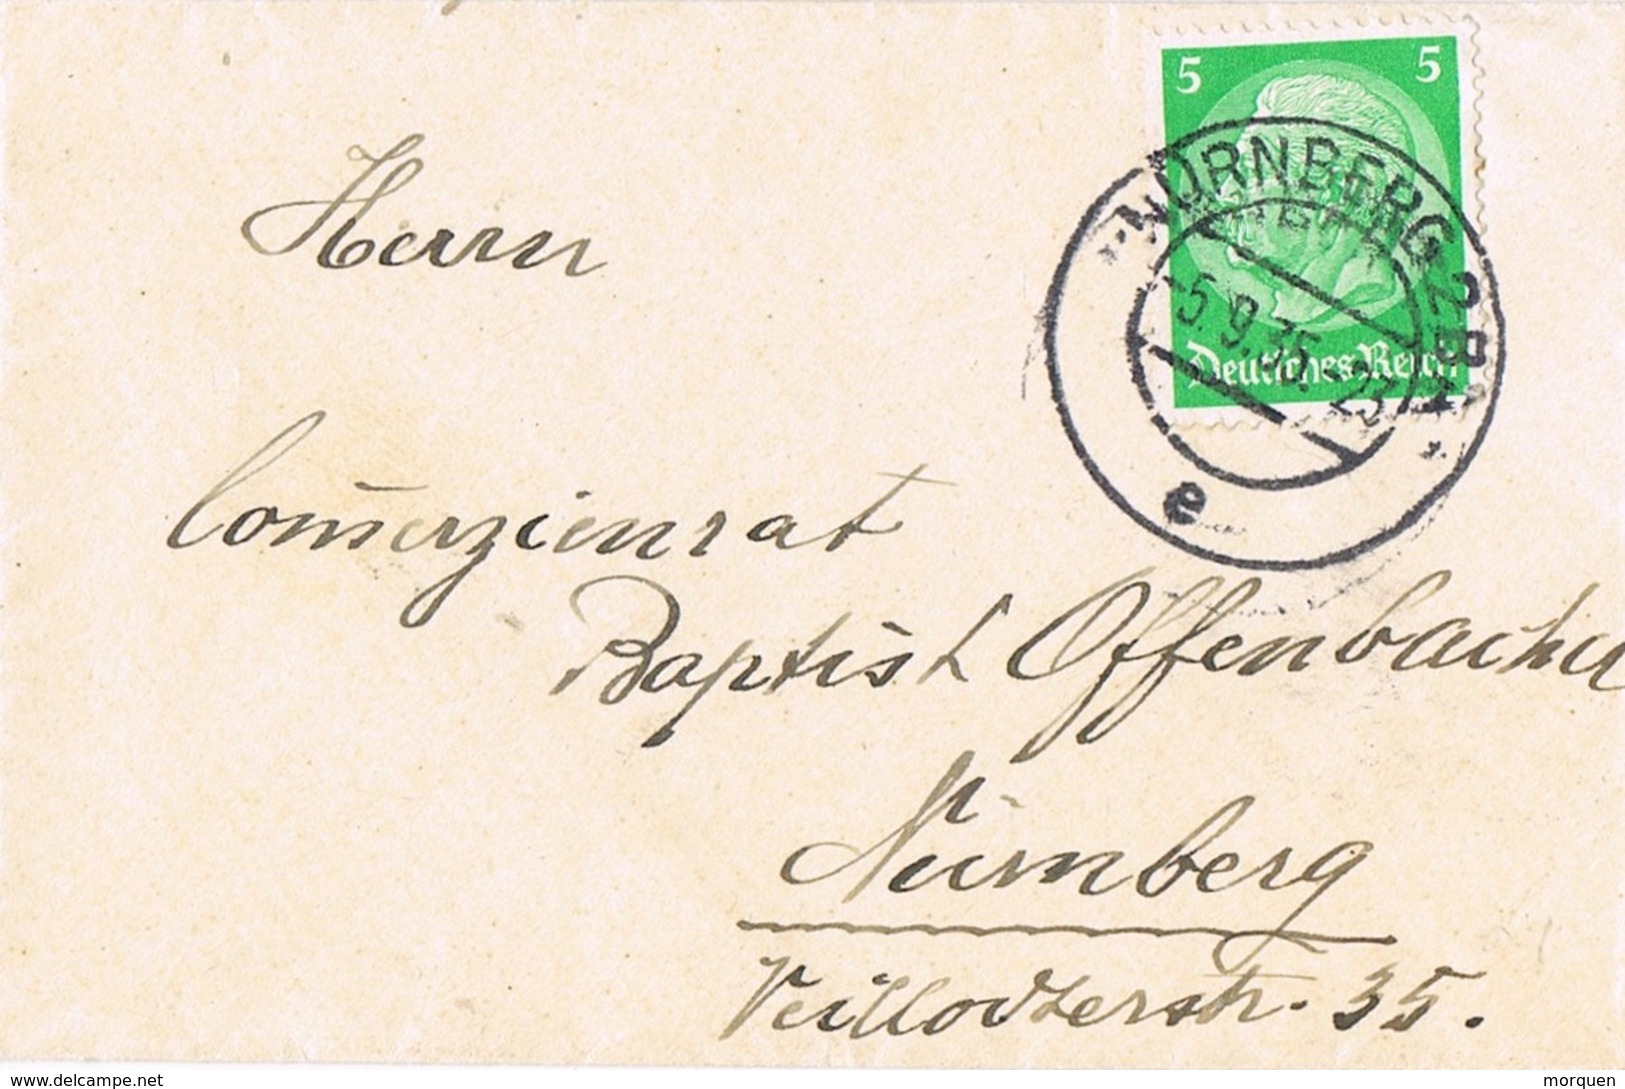 5 5
NÜRNBERG 2 BHF
-5.9.35.-23
Deutsches Reich
e
Herrn
Comerzienrat
Baptist Offenbacher
Nürnberg
Veillodterstr. 35.
www.delcampe.net
morquen